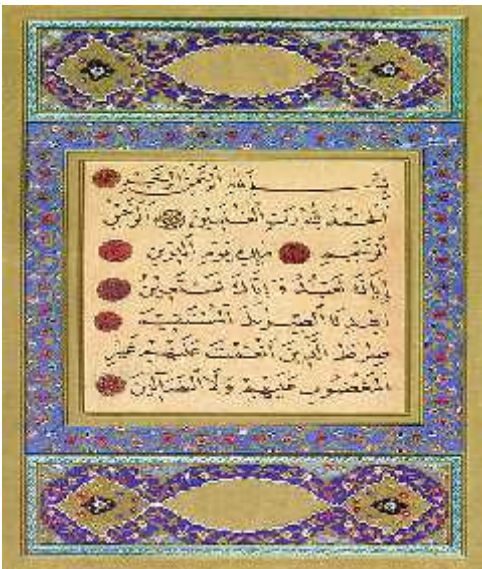 بِسْمِ اللَّهِ الرَّحْمَنِ الرَّحِيمِ
الْحَمْدُ لِلَّهِ رَبِّ الْعَالَمِينَ الرَّحْمَنِ
الرَّحِيمِ مَالِكِ يَوْمِ الدِّينِ
إِيَّاكَ نَعْبُدُ وَإِيَّاكَ نَسْتَعِينُ
اهْدِنَا الصِّرَاطَ الْمُسْتَقِيمَ
صِرَاطَ الَّذِينَ أَنْعَمْتَ عَلَيْهِمْ غَيْرِ
الْمَغْضُوبِ عَلَيْهِمْ وَلَا الضَّالِّينَ